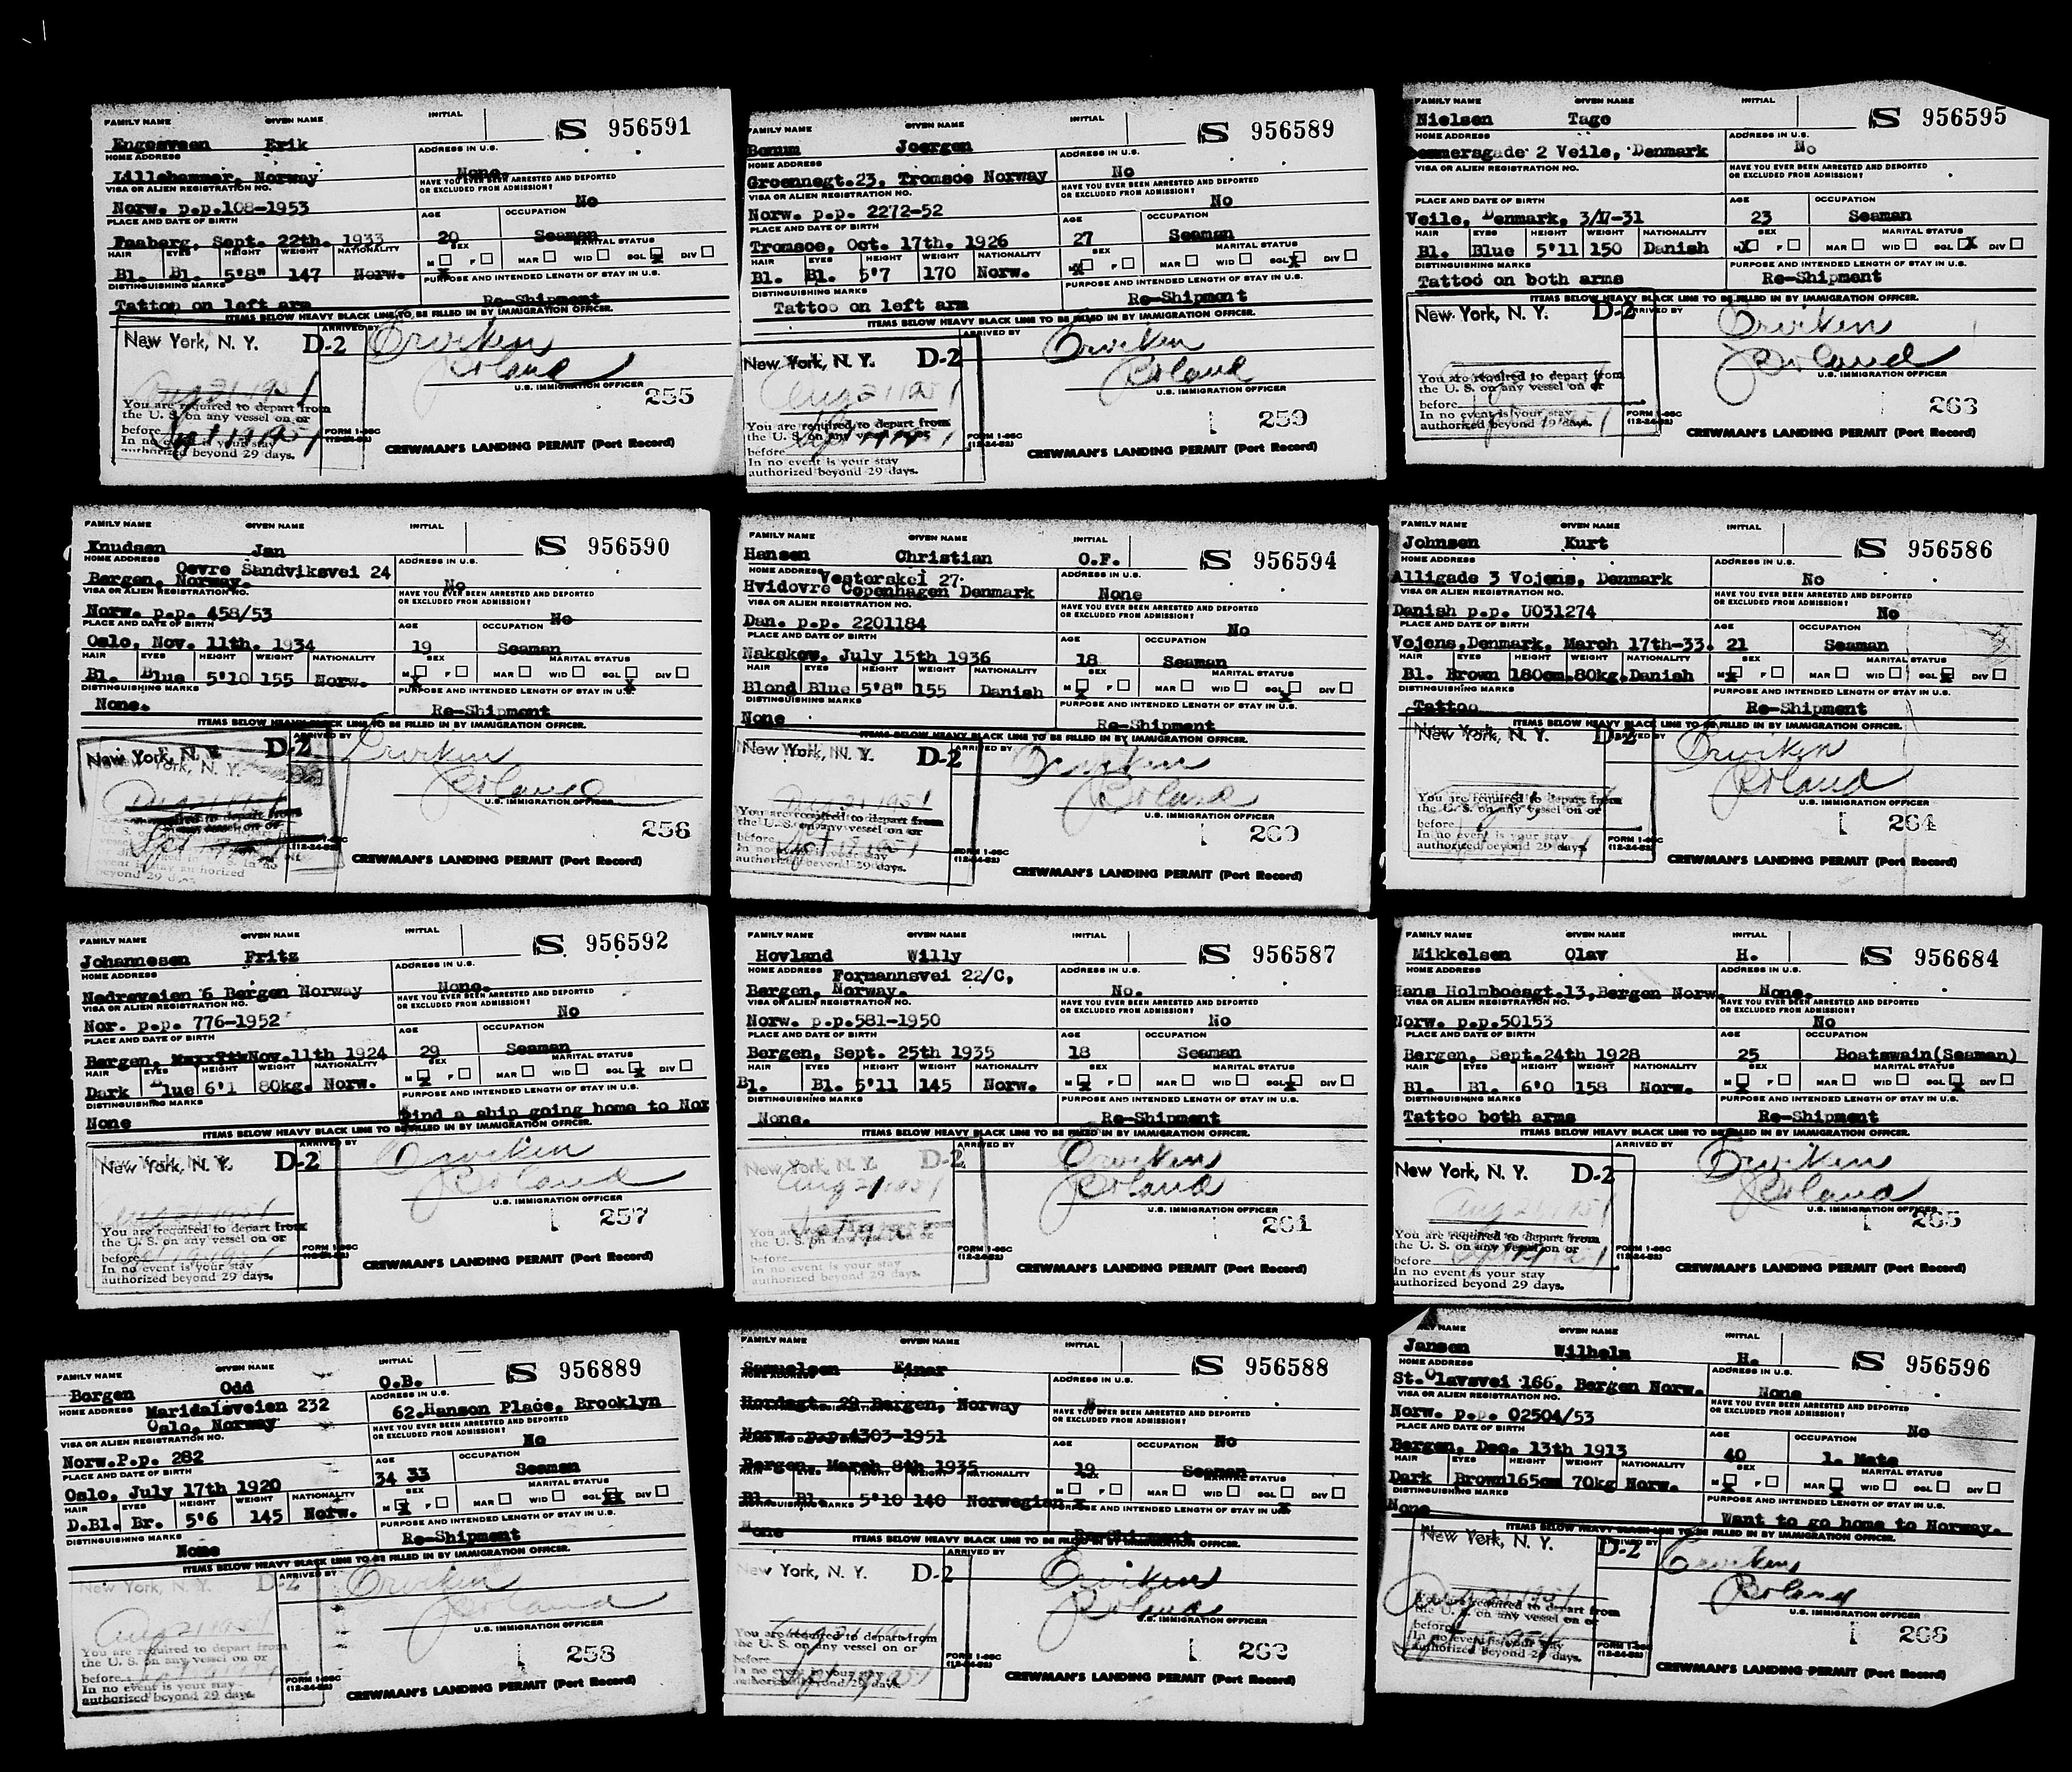 FAMILY NAME GIVEN NAME INITIAL
Engesveen Erik S 956591
HOME ADDRESS ADDRESS IN U.S.
Lillehammer, Norway None.
VISA OR ALIEN REGISTRATION NO. HAVE YOU EVER BEEN ARRESTED AND DEPORTED OR EXCLUDED FROM ADMISSION?
Norw. p.p.108-1953 No
PLACE AND DATE OF BIRTH AGE OCCUPATION
Faaberg, Sept. 22th. 1933 20 Seaman
HAIR EYES HEIGHT WEIGHT NATIONALITY SEX MARITAL STATUS
Bl. Bl. 5'8" 147 Norw. M X F MAR WID SGL X DIV
DISTINGUISHING MARKS PURPOSE AND INTENDED LENGTH OF STAY IN U.S.
Tattoo on left arm Re-Shipment
ITEMS BELOW HEAVY BLACK LINE TO BE FILLED IN BY IMMIGRATION OFFICER.
New York, N. Y. D-2 ARRIVED BY Orviken
Roland
Aug 21 1954 U.S. IMMIGRATION OFFICER
You are required to depart from 255
the U. S. on any vessel on or
before Sept 19 1954 FORM I-95C
In no event is your stay (12-24-52)
authorized beyond 29 days. CREWMAN'S LANDING PERMIT (Port Record)
FAMILY NAME GIVEN NAME INITIAL
Bonum Joergen S 956589
HOME ADDRESS ADDRESS IN U.S.
Groennegt.23, Tromsoe Norway No
VISA OR ALIEN REGISTRATION NO. HAVE YOU EVER BEEN ARRESTED AND DEPORTED OR EXCLUDED FROM ADMISSION?
Norw. p.p. 2272-52 No
PLACE AND DATE OF BIRTH AGE OCCUPATION
Tromsoe, Oct. 17th. 1926 27 Seaman
HAIR EYES HEIGHT WEIGHT NATIONALITY SEX MARITAL STATUS
Bl. Bl. 5'7 170 Norw. M X F MAR WID SGL X DIV
DISTINGUISHING MARKS PURPOSE AND INTENDED LENGTH OF STAY IN U.S.
Tattoo on left arm Re-Shipment
ITEMS BELOW HEAVY BLACK LINE TO BE FILLED IN BY IMMIGRATION OFFICER.
New York, N. Y. D-2 ARRIVED BY Orviken
Roland
Aug 21 1954 U.S. IMMIGRATION OFFICER
You are required to depart from 259
the U. S. on any vessel on or
before Sept 19 1954 FORM I-95C
In no event is your stay (12-24-52)
authorized beyond 29 days. CREWMAN'S LANDING PERMIT (Port Record)
FAMILY NAME GIVEN NAME INITIAL
Nielsen Tage S 956595
HOME ADDRESS ADDRESS IN U.S.
2 Veile, Denmark No
VISA OR ALIEN REGISTRATION NO. HAVE YOU EVER BEEN ARRESTED AND DEPORTED OR EXCLUDED FROM ADMISSION?
PLACE AND DATE OF BIRTH AGE OCCUPATION
Veile, Denmark, 3/17-31 23 Seaman
HAIR EYES HEIGHT WEIGHT NATIONALITY SEX MARITAL STATUS
Bl. Blue 5'11 150 Danish M X F MAR WID SGL X DIV
DISTINGUISHING MARKS PURPOSE AND INTENDED LENGTH OF STAY IN U.S.
Tattoo on both arms Re-Shipment
ITEMS BELOW HEAVY BLACK LINE TO BE FILLED IN BY IMMIGRATION OFFICER.
New York, N. Y. D-2 ARRIVED BY Orviken
Roland
U.S. IMMIGRATION OFFICER
You are required to depart from 263
the U. S. on any vessel on or
before FORM I-95C
In no event is your stay (12-24-52)
authorized beyond 29 days. CREWMAN'S LANDING PERMIT (Port Record)
FAMILY NAME GIVEN NAME INITIAL
Knudsen Jan S 956590
HOME ADDRESS Oevre Sandviksvei 24 ADDRESS IN U.S.
Bergen, Norway. No
VISA OR ALIEN REGISTRATION NO. HAVE YOU EVER BEEN ARRESTED AND DEPORTED OR EXCLUDED FROM ADMISSION?
Norw. p.p. 458/53 No
PLACE AND DATE OF BIRTH AGE OCCUPATION
Oslo, Nov. 11th. 1934 19 Seaman
HAIR EYES HEIGHT WEIGHT NATIONALITY SEX MARITAL STATUS
Bl. Blue 5'10 155 Norw. M X F MAR WID SGL X DIV
DISTINGUISHING MARKS PURPOSE AND INTENDED LENGTH OF STAY IN U.S.
None. Re-Shipment
ITEMS BELOW HEAVY BLACK LINE TO BE FILLED IN BY IMMIGRATION OFFICER.
New York, N. Y. D-2 ARRIVED BY Orviken
New York, N. Y. Roland
Aug 21 1954 U.S. IMMIGRATION OFFICER
256
beyond 29 days CREWMAN'S LANDING PERMIT (Port Record)
FAMILY NAME GIVEN NAME INITIAL
Hansen Christian O.F. S 956594
HOME ADDRESS Vesterskel 27. ADDRESS IN U.S.
Hvidovre Copenhagen Denmark None
VISA OR ALIEN REGISTRATION NO. HAVE YOU EVER BEEN ARRESTED AND DEPORTED OR EXCLUDED FROM ADMISSION?
Dan. p.p. 2201184 No
PLACE AND DATE OF BIRTH AGE OCCUPATION
Nakskow, July 15th 1936 18 Seaman
HAIR EYES HEIGHT WEIGHT NATIONALITY SEX MARITAL STATUS
Blond Blue 5'8" 155 Danish M X F MAR WID SGL X DIV
DISTINGUISHING MARKS PURPOSE AND INTENDED LENGTH OF STAY IN U.S.
None Re-Shipment
ITEMS BELOW HEAVY BLACK LINE TO BE FILLED IN BY IMMIGRATION OFFICER.
New York, N. Y. D-2 ARRIVED BY Orviken
Roland
Aug 21 1954 U.S. IMMIGRATION OFFICER
You are required to depart from 260
the U. S. on any vessel on or
before Sept 19 1954 FORM I-95C
In no event is your stay (12-24-52)
authorized beyond 29 days. CREWMAN'S LANDING PERMIT (Port Record)
FAMILY NAME GIVEN NAME INITIAL
Johnsen Kurt S 956586
HOME ADDRESS ADDRESS IN U.S.
Alligade 3 Vojens, Denmark No
VISA OR ALIEN REGISTRATION NO. HAVE YOU EVER BEEN ARRESTED AND DEPORTED OR EXCLUDED FROM ADMISSION?
Danish p.p. U031274 No
PLACE AND DATE OF BIRTH AGE OCCUPATION
Vojens,Denmark, March 17th-33. 21 Seaman
HAIR EYES HEIGHT WEIGHT NATIONALITY SEX MARITAL STATUS
Bl. Brown 180cm.80kg.Danish M X F MAR WID SGL X DIV
DISTINGUISHING MARKS PURPOSE AND INTENDED LENGTH OF STAY IN U.S.
Tattoo Re-Shipment
ITEMS BELOW HEAVY BLACK LINE TO BE FILLED IN BY IMMIGRATION OFFICER.
New York, N. Y. D-2 ARRIVED BY Orviken
Roland
U.S. IMMIGRATION OFFICER
You are required to depart from 264
the U. S. on any vessel on or
before FORM I-95C
In no event is your stay (12-24-52)
authorized beyond 29 days. CREWMAN'S LANDING PERMIT (Port Record)
FAMILY NAME GIVEN NAME INITIAL
Johannesen Fritz S 956592
HOME ADDRESS ADDRESS IN U.S.
Nedreveien 6 Bergen Norway None.
VISA OR ALIEN REGISTRATION NO. HAVE YOU EVER BEEN ARRESTED AND DEPORTED OR EXCLUDED FROM ADMISSION?
Nor. p.p. 776-1952 No
PLACE AND DATE OF BIRTH AGE OCCUPATION
Bergen, Nov.11th 1924 29 Seaman
HAIR EYES HEIGHT WEIGHT NATIONALITY SEX MARITAL STATUS
Dark Blue 6'1 80kg. Norw. M X F MAR WID SGL X DIV
DISTINGUISHING MARKS PURPOSE AND INTENDED LENGTH OF STAY IN U.S.
None Find a ship going home to Nor
ITEMS BELOW HEAVY BLACK LINE TO BE FILLED IN BY IMMIGRATION OFFICER.
New York, N. Y. D-2 ARRIVED BY Orviken
Roland
Aug 21 1954 U.S. IMMIGRATION OFFICER
You are required to depart from 257
the U. S. on any vessel on or
before Sept 19 1954 FORM I-95C
In no event is your stay (12-24-52)
authorized beyond 29 days. CREWMAN'S LANDING PERMIT (Port Record)
FAMILY NAME GIVEN NAME INITIAL
Hovland Willy S 956587
HOME ADDRESS Formannsvei 22/C, ADDRESS IN U.S.
Bergen, Norway. No.
VISA OR ALIEN REGISTRATION NO. HAVE YOU EVER BEEN ARRESTED AND DEPORTED OR EXCLUDED FROM ADMISSION?
Norw. p.p.581-1950 No
PLACE AND DATE OF BIRTH AGE OCCUPATION
Bergen, Sept. 25th 1935 18 Seaman
HAIR EYES HEIGHT WEIGHT NATIONALITY SEX MARITAL STATUS
Bl. Bl. 5'11 145 Norw. M X F MAR WID SGL X DIV
DISTINGUISHING MARKS PURPOSE AND INTENDED LENGTH OF STAY IN U.S.
None. Re-Shipment
ITEMS BELOW HEAVY BLACK LINE TO BE FILLED IN BY IMMIGRATION OFFICER.
New York, N. Y. D-2 ARRIVED BY Orviken
Aug 21 1954 Roland
U.S. IMMIGRATION OFFICER
You are required to depart from 261
the U. S. on any vessel on or
before FORM I-95C
In no event is your stay (12-24-52)
authorized beyond 29 days. CREWMAN'S LANDING PERMIT (Port Record)
FAMILY NAME GIVEN NAME INITIAL
Mikkelsen Olav H. S 956684
HOME ADDRESS ADDRESS IN U.S.
Hans Holmboesgt.13,Bergen Norw. None.
VISA OR ALIEN REGISTRATION NO. HAVE YOU EVER BEEN ARRESTED AND DEPORTED OR EXCLUDED FROM ADMISSION?
Norw. p.p.50153 No
PLACE AND DATE OF BIRTH AGE OCCUPATION
Bergen, Sept.24th 1928 25 Boatswain(Seaman)
HAIR EYES HEIGHT WEIGHT NATIONALITY SEX MARITAL STATUS
Bl. Bl. 6'0 158 Norw. M X F MAR WID SGL X DIV
DISTINGUISHING MARKS PURPOSE AND INTENDED LENGTH OF STAY IN U.S.
Tattoo both arms Re-Shipment
ITEMS BELOW HEAVY BLACK LINE TO BE FILLED IN BY IMMIGRATION OFFICER.
New York, N. Y. D-2 ARRIVED BY Orviken
Roland
Aug 21 1954 U.S. IMMIGRATION OFFICER
You are required to depart from 265
the U. S. on any vessel on or
before Sept 19 1954 FORM I-95C
In no event is your stay (12-24-52)
authorized beyond 29 days. CREWMAN'S LANDING PERMIT (Port Record)
FAMILY NAME GIVEN NAME INITIAL
Borgen Odd O.B. S 956889
HOME ADDRESS Maridalsveien 232 ADDRESS IN U.S.
Oslo, Norway 62.Hanson Place, Brooklyn
VISA OR ALIEN REGISTRATION NO. HAVE YOU EVER BEEN ARRESTED AND DEPORTED OR EXCLUDED FROM ADMISSION?
Norw.P.p. 282 No
PLACE AND DATE OF BIRTH AGE OCCUPATION
Oslo, July 17th 1920 34 33 Seaman
HAIR EYES HEIGHT WEIGHT NATIONALITY SEX MARITAL STATUS
D.Bl. Br. 5'6 145 Norw. M X F MAR WID SGL X DIV
DISTINGUISHING MARKS PURPOSE AND INTENDED LENGTH OF STAY IN U.S.
None Re-Shipment
ITEMS BELOW HEAVY BLACK LINE TO BE FILLED IN BY IMMIGRATION OFFICER.
New York, N. Y. D-2 ARRIVED BY Orviken
Roland
Aug 21 1954 U.S. IMMIGRATION OFFICER
You are required to depart from 258
the U. S. on any vessel on or
before FORM I-95C
In no event is your stay (12-24-52)
authorized beyond 29 days. CREWMAN'S LANDING PERMIT (Port Record)
FAMILY NAME GIVEN NAME INITIAL
Samuelsen Einar S 956588
HOME ADDRESS ADDRESS IN U.S.
Hordagt. 29 Bergen, Norway
HAVE YOU EVER BEEN ARRESTED AND DEPORTED OR EXCLUDED FROM ADMISSION?
Norw. p.p.4303-1951 No
AGE OCCUPATION
Bergen, March 8th 1935 19 Seaman
HAIR EYES HEIGHT WEIGHT NATIONALITY SEX MARITAL STATUS
Bl. Bl. 5'10 140 Norwegian M X F MAR WID SGL X DIV
DISTINGUISHING MARKS PURPOSE AND INTENDED LENGTH OF STAY IN U.S.
None Re-Shipment
ITEMS BELOW HEAVY BLACK LINE TO BE FILLED IN BY IMMIGRATION OFFICER.
New York, N. Y. D-2 ARRIVED BY Orviken
Roland
U.S. IMMIGRATION OFFICER
You are required to depart from 262
the U. S. on any vessel on or
before FORM I-95C
In no event is your stay (12-24-52)
authorized beyond 29 days. CREWMAN'S LANDING PERMIT (Port Record)
FAMILY NAME GIVEN NAME INITIAL
Jansen Wilhelm H. S 956596
HOME ADDRESS ADDRESS IN U.S.
St.Olavsvei 166, Bergen Norw. None
VISA OR ALIEN REGISTRATION NO. HAVE YOU EVER BEEN ARRESTED AND DEPORTED OR EXCLUDED FROM ADMISSION?
Norw. p.p. 02504/53 No
PLACE AND DATE OF BIRTH AGE OCCUPATION
Bergen, Dec. 13th 1913 40 1. Mate
HAIR EYES HEIGHT WEIGHT NATIONALITY SEX MARITAL STATUS
Dark Brown 165cm 70kg Norw. M X F MAR X WID SGL DIV
DISTINGUISHING MARKS PURPOSE AND INTENDED LENGTH OF STAY IN U.S.
None Want to go home to Norway.
ITEMS BELOW HEAVY BLACK LINE TO BE FILLED IN BY IMMIGRATION OFFICER.
New York, N. Y. D-2 ARRIVED BY Orviken
Roland
Aug 21 1954 U.S. IMMIGRATION OFFICER
You are required to depart from 266
the U. S. on any vessel on or
before FORM I-95C
In no event is your stay (12-24-52)
authorized beyond 29 days. CREWMAN'S LANDING PERMIT (Port Record)